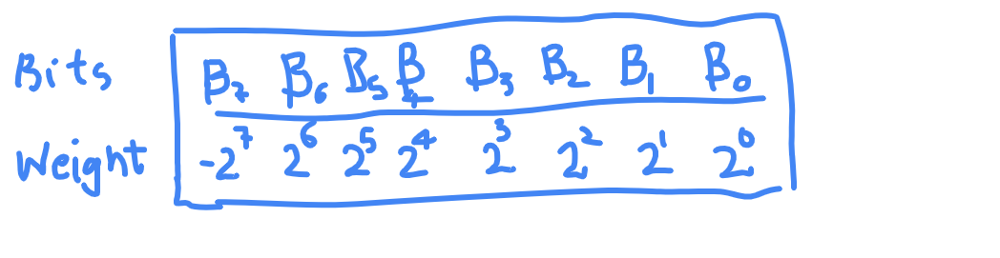 Bits B₇ B₆ B₅ B₄ B₃ B₂ B₁ B₀
Weight -2⁷ 2⁶ 2⁵ 2⁴ 2³ 2² 2¹ 2⁰